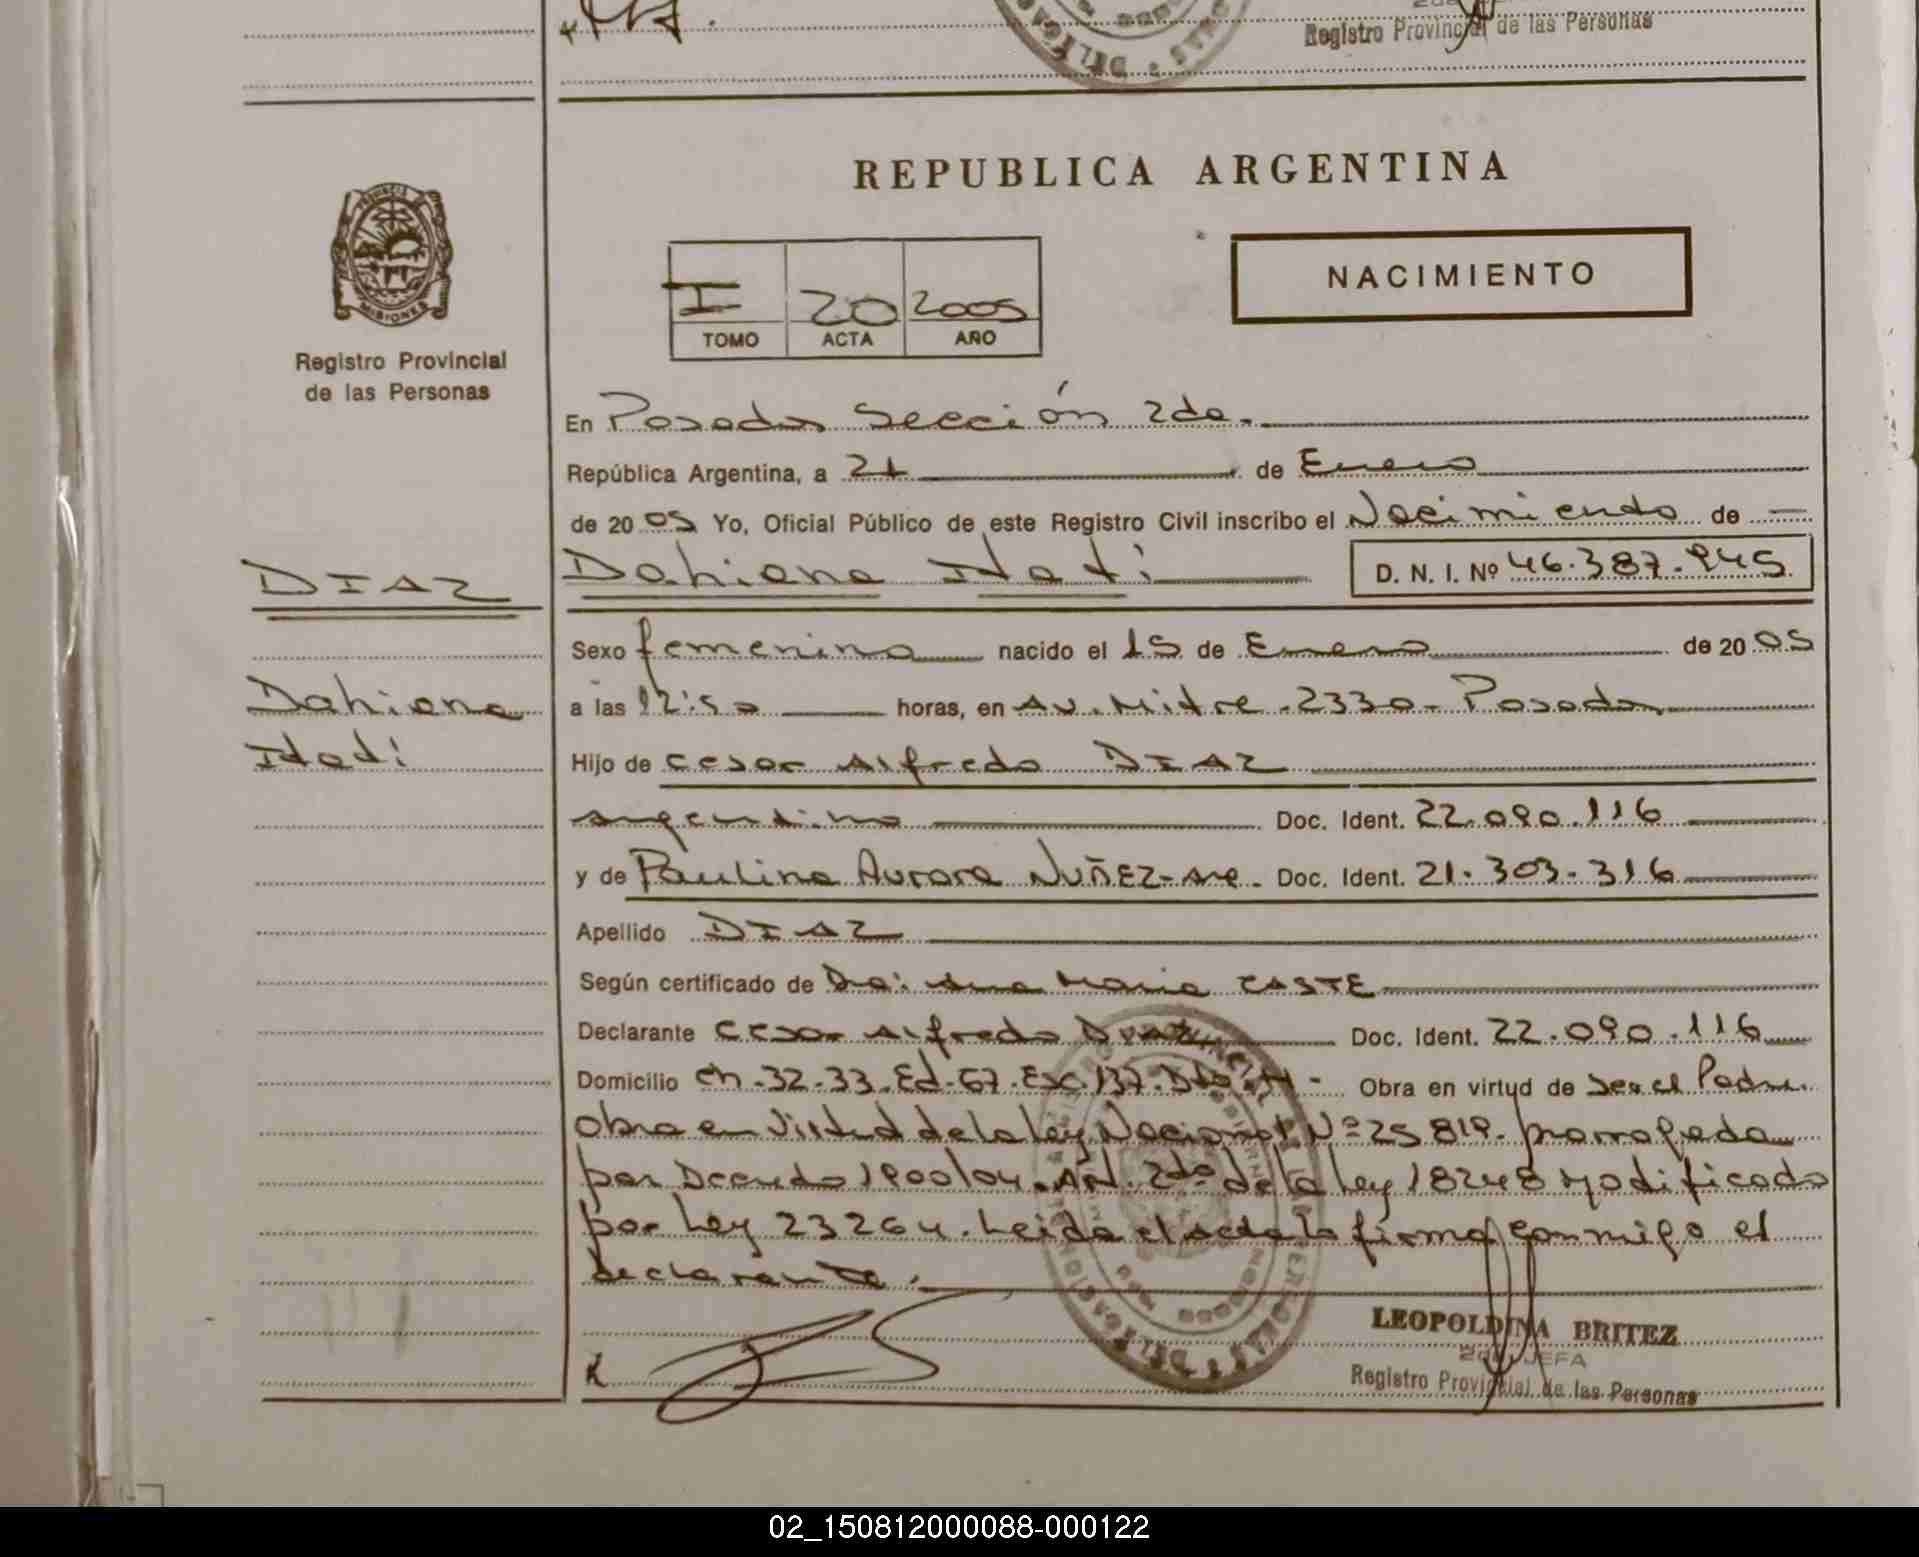 Registro Provincial de las Personas
REPUBLICA ARGENTINA
PROVINCIA DE
MISIONES
NACIMIENTO
I 20 2005
TOMO ACTA AÑO
Registro Provincial
de las Personas
En Posadas Sección 2da.
República Argentina, a 21 de Enero
de 2005 Yo, Oficial Público de este Registro Civil inscribo el Nacimiento de
DIAZ
Dahiana Itatí D. N. I. Nº 46.387.945
Sexo femenino nacido el 15 de Enero de 2005
Dahiana
a las 12:50 horas, en Av. Mitre 2330 - Posadas
Itatí
Hijo de Cesar Alfredo DIAZ
argentino Doc. Ident. 22.090.116
y de Paulina Aurora NUÑEZ - Arg. Doc. Ident. 21.303.316
Apellido DIAZ
Según certificado de Dra: Ana Maria CASTE
Declarante Cesar Alfredo DIAZ Doc. Ident. 22.090.116
Domicilio Ch. 32-33. Ed. 67. Esc. 137. Dto. Obra en virtud de ser el Padre.
Obra en Virtud de la ley Nacional Nº 25819. prorrogada
por Decreto 1900/04. Art. 2do de la ley 18248 modificado
por Ley 23264. Leida el acta la firma conmigo el
declarante.
LEOPOLDINA BRITEZ
2da JEFA
Registro Provincial de las Personas
02_150812000088-000122